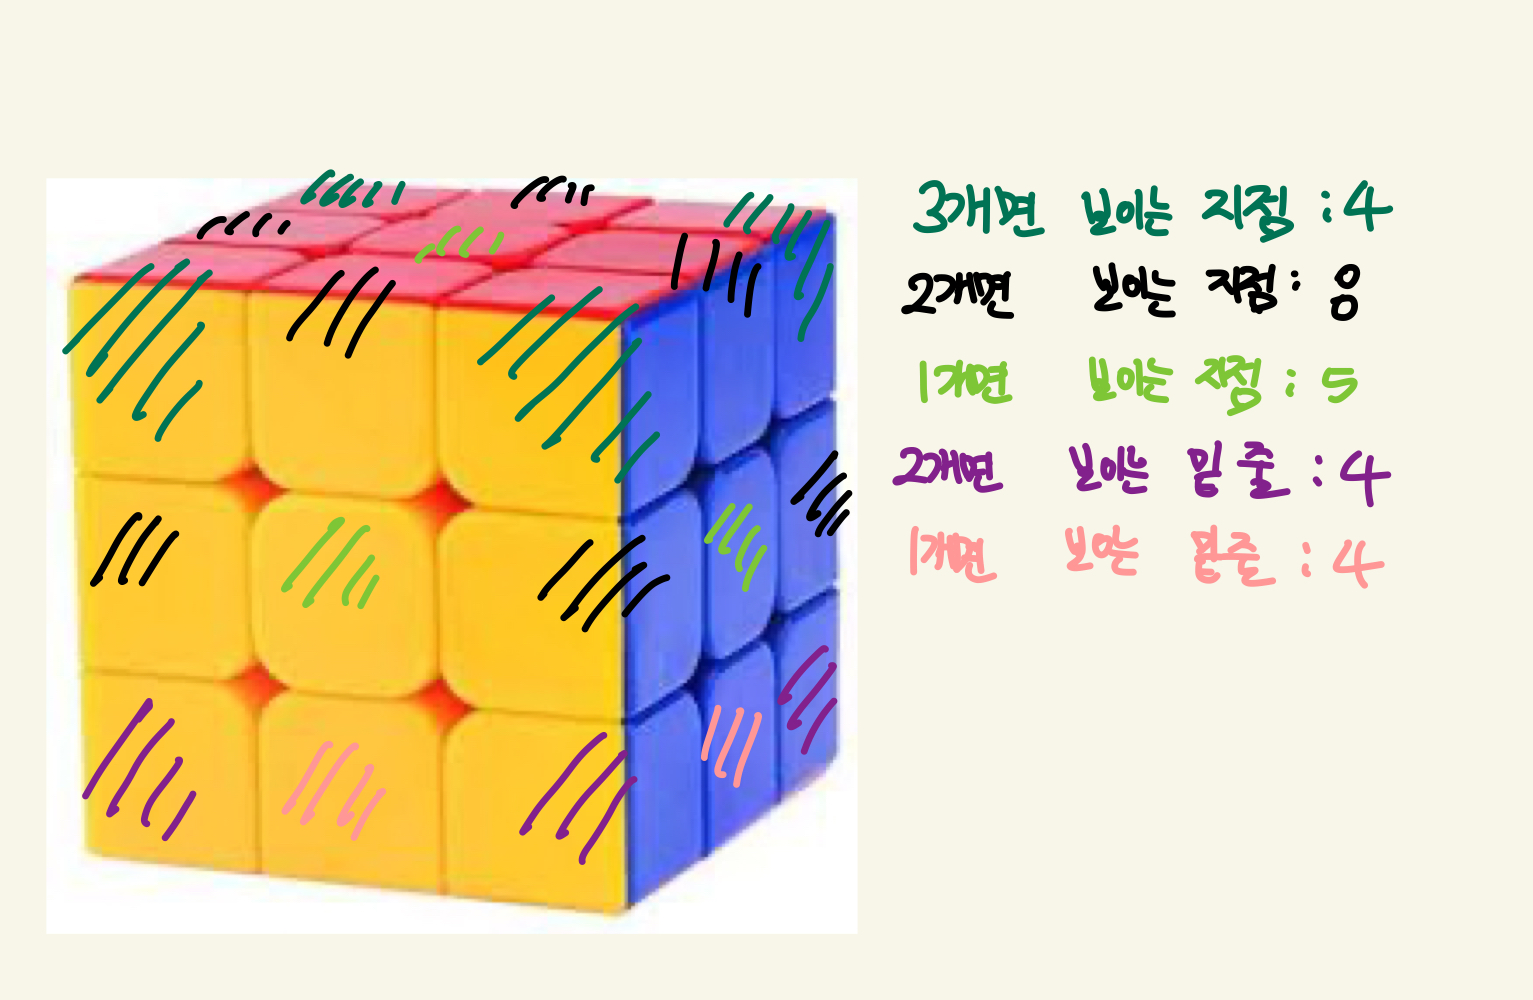 3개면 보이는 지점 : 4
2개면 보이는 지점 : 8
1개면 보이는 지점 : 5
2개면 보이는 밑줄 : 4
1개면 보이는 밑줄 : 4